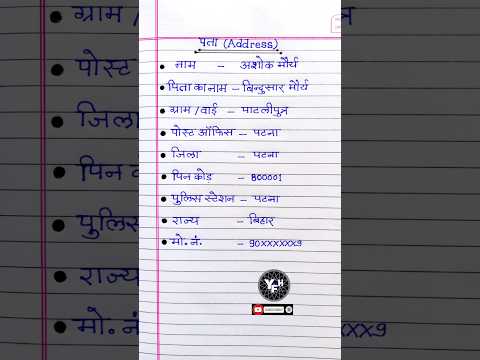 पता (Address)
नाम – अशोक मौर्य
पिता का नाम – बिन्दुसार मौर्य
ग्राम / वार्ड – पाटलीपुत्र
पोस्ट ऑफिस – पटना
जिला – पटना
पिन कोड – 800001
पुलिस स्टेशन – पटना
राज्य – बिहार
मो. नं. – 90xxxxxxx9